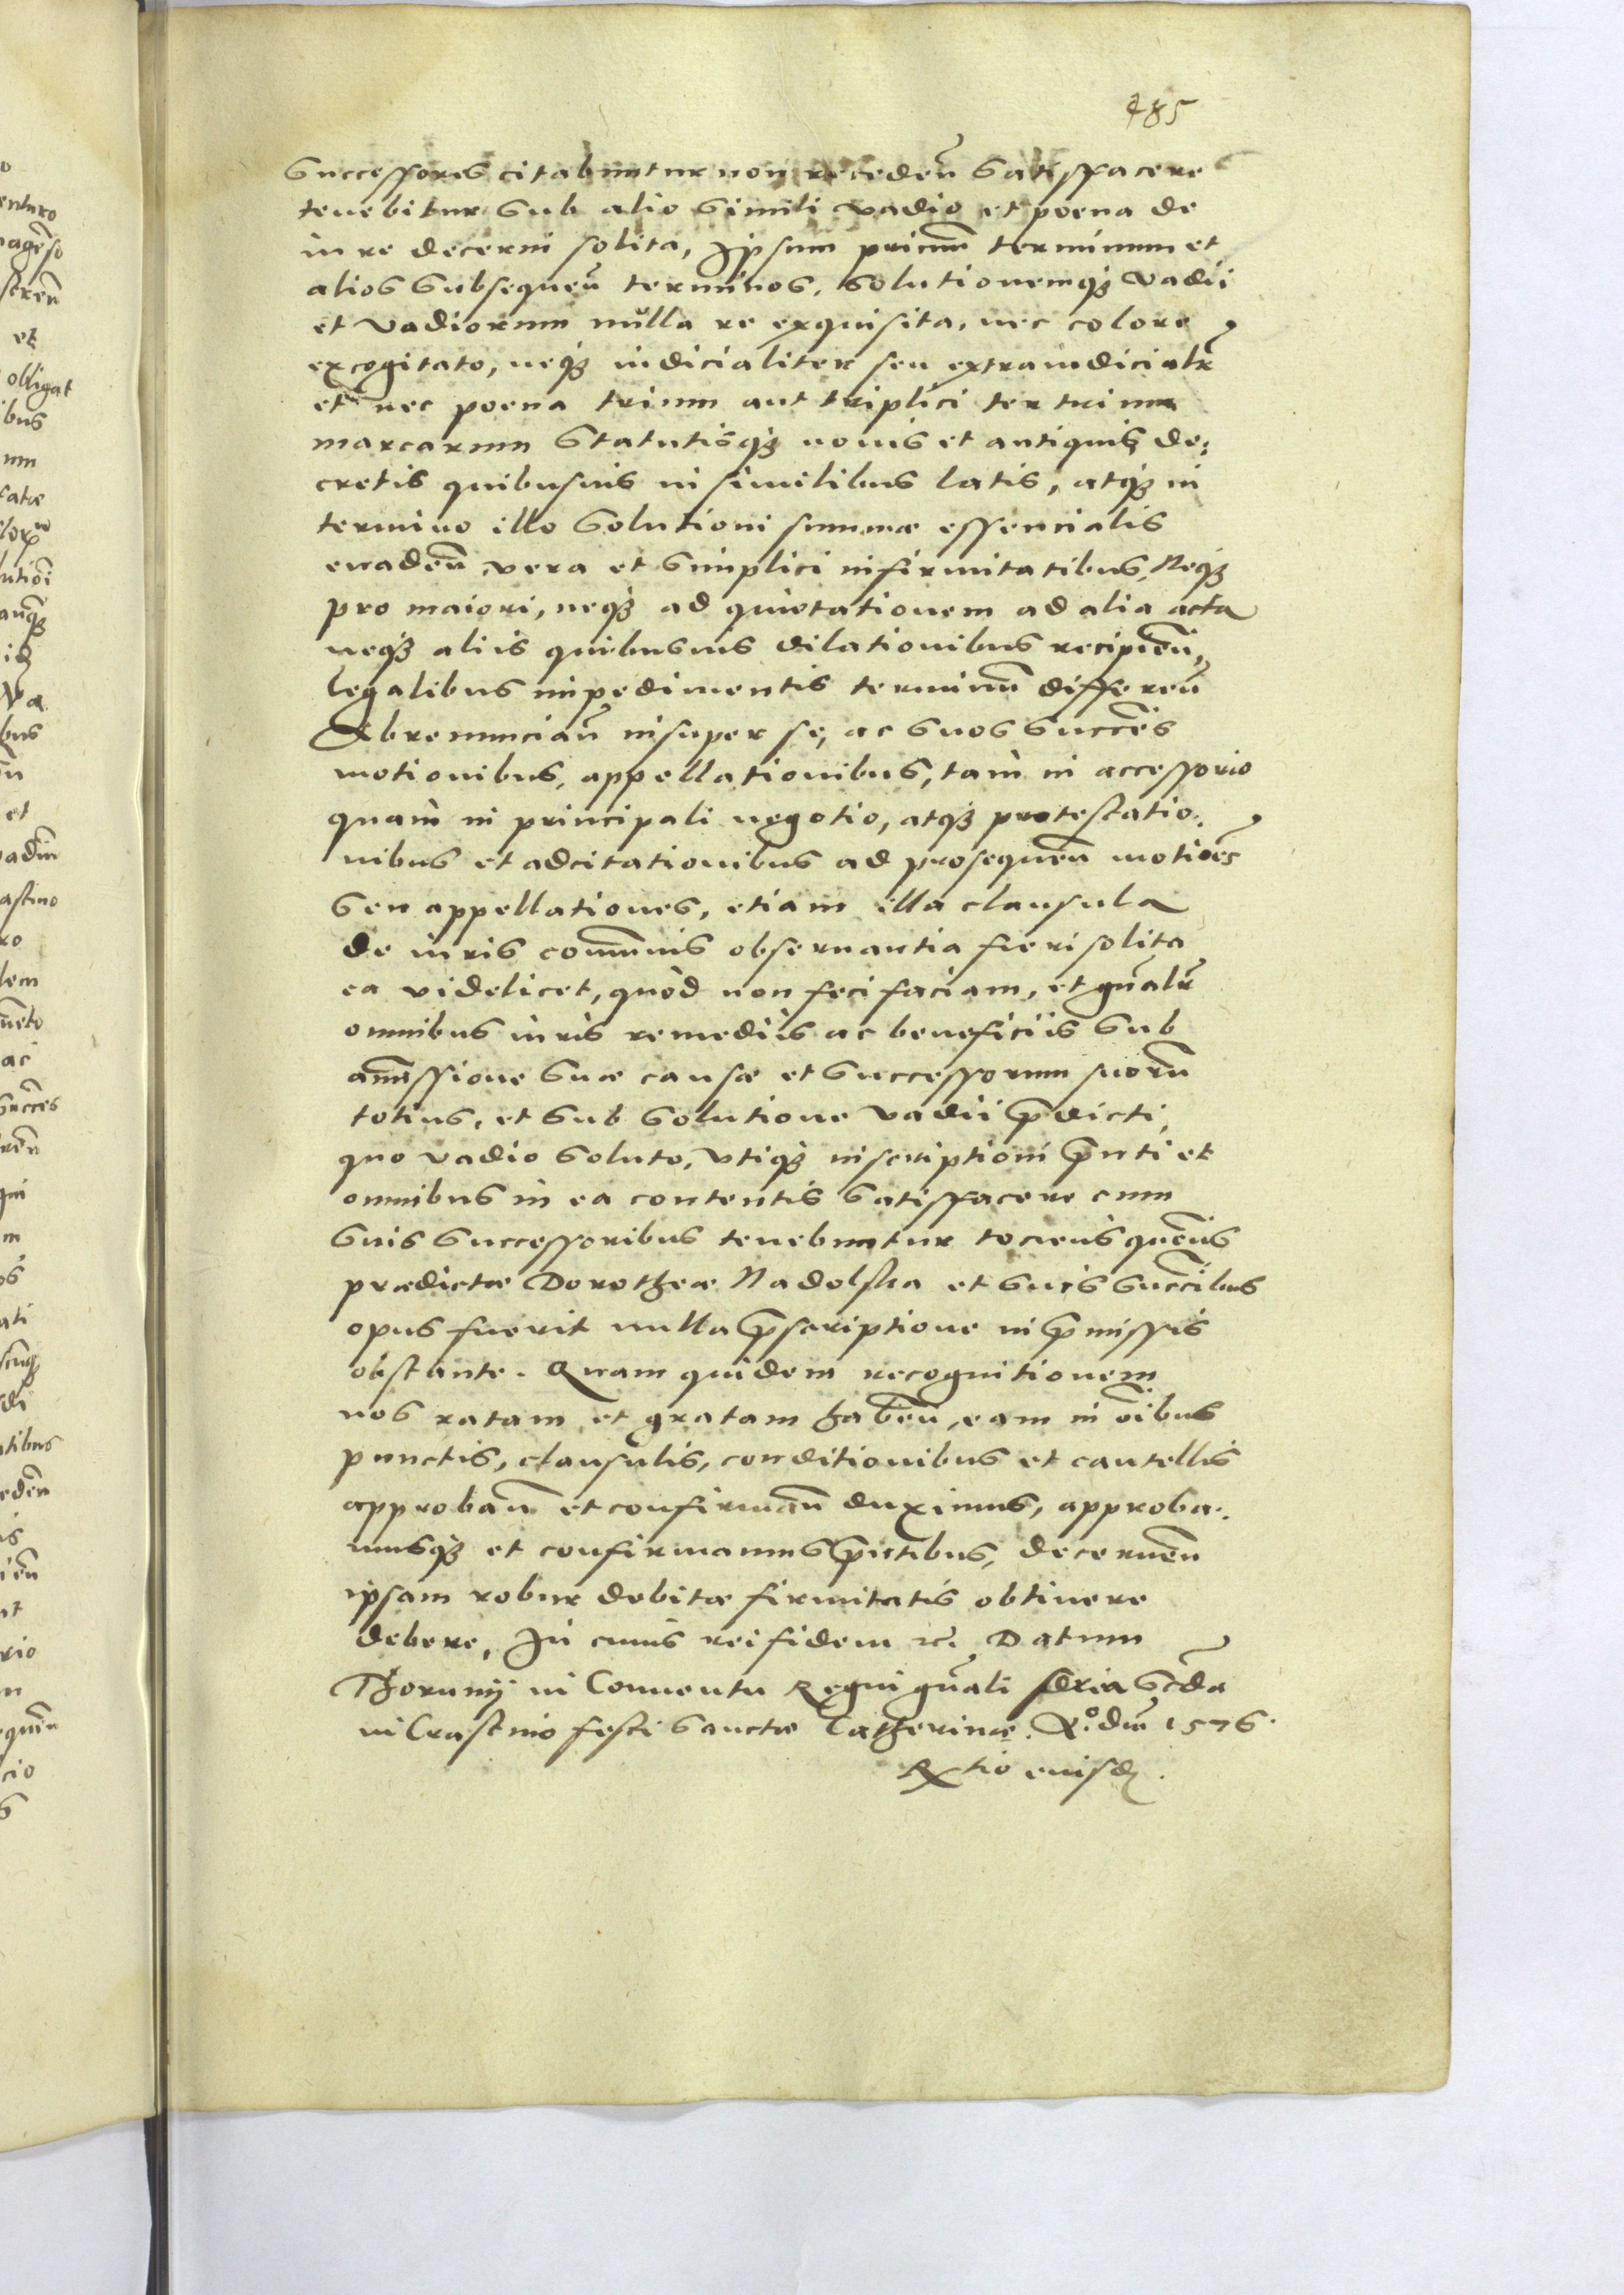 485
Successores citabuntur non receden̄ Satisfacere
tenebitur Sub alio Simili vadio et poena de
iure decerni solita, Ipsum primum terminum et
alios Subsequen̄ terminos, Solutionemqȝ vadii
et vadiorum nulla re exquisita, nec colore
excogitato, neqȝ iudicialiter seu extraiudicialr̄
et nec poena trium aut triplici ter trium
marcarum Statutisqȝ nouis et antiquis de:
cretis quibusuis in similibus latis, atqȝ in
termino illo Solutioni summae essencialis
euaden̄ vera et Simplici infirmitatibus, Neqȝ
pro maiori, neqȝ ad quietationem ad alia acta
neqȝ aliis quibusuis dilationibus recipien̄,
legalibus impedimentis terminū differen̄
Abrenuncian̄ insuper se, ac Suos Succēs
motionibus, appellationibus, tam in accessorio
quam in principali negotio, atqȝ protestatio:
nibus et adcitationibus ad prosequen̄ motiōes
Seu appellationes, etiam illa clausula
de iuris com̄unis obseruantia fieri solita
ea videlicet, quod non feci faciam, et gn̄alr̄
omnibus iuris remediis ac beneficiis Sub
am̄issione Suae causae et Successorum suorū
totius, et Sub Solutione vadii p̄dicti,
quo vadio Soluto, vtiqȝ inscriptioni p̄nti et
omnibus in ea contentis Satisfacere cum
Suis Successoribus tenebuntur tociens quoēns
praedictae Dorotheae Nadolska et Suis Succībus
opus fuerit nulla p̄scriptione in p̄missis
obstante. Quam quidem recognitionem
nos ratam et gratam haben̄, eam in oībus
punctis, clausulis, conditionibus et cautellis
approban̄ et confirman̄ duximus, approba:
musqȝ et confirmamus p̄ntibus, decernen̄
ipsam robur debitae firmitatis obtinere
debere, In cuius rei fidem etc. Datum
Thorunij in Conuentu Regni gn̄ali feria Scd̄a
in Crastino festi Sanctae Catherinae. Aº. dnī 1576.
Rx̄tio eiusd̄.